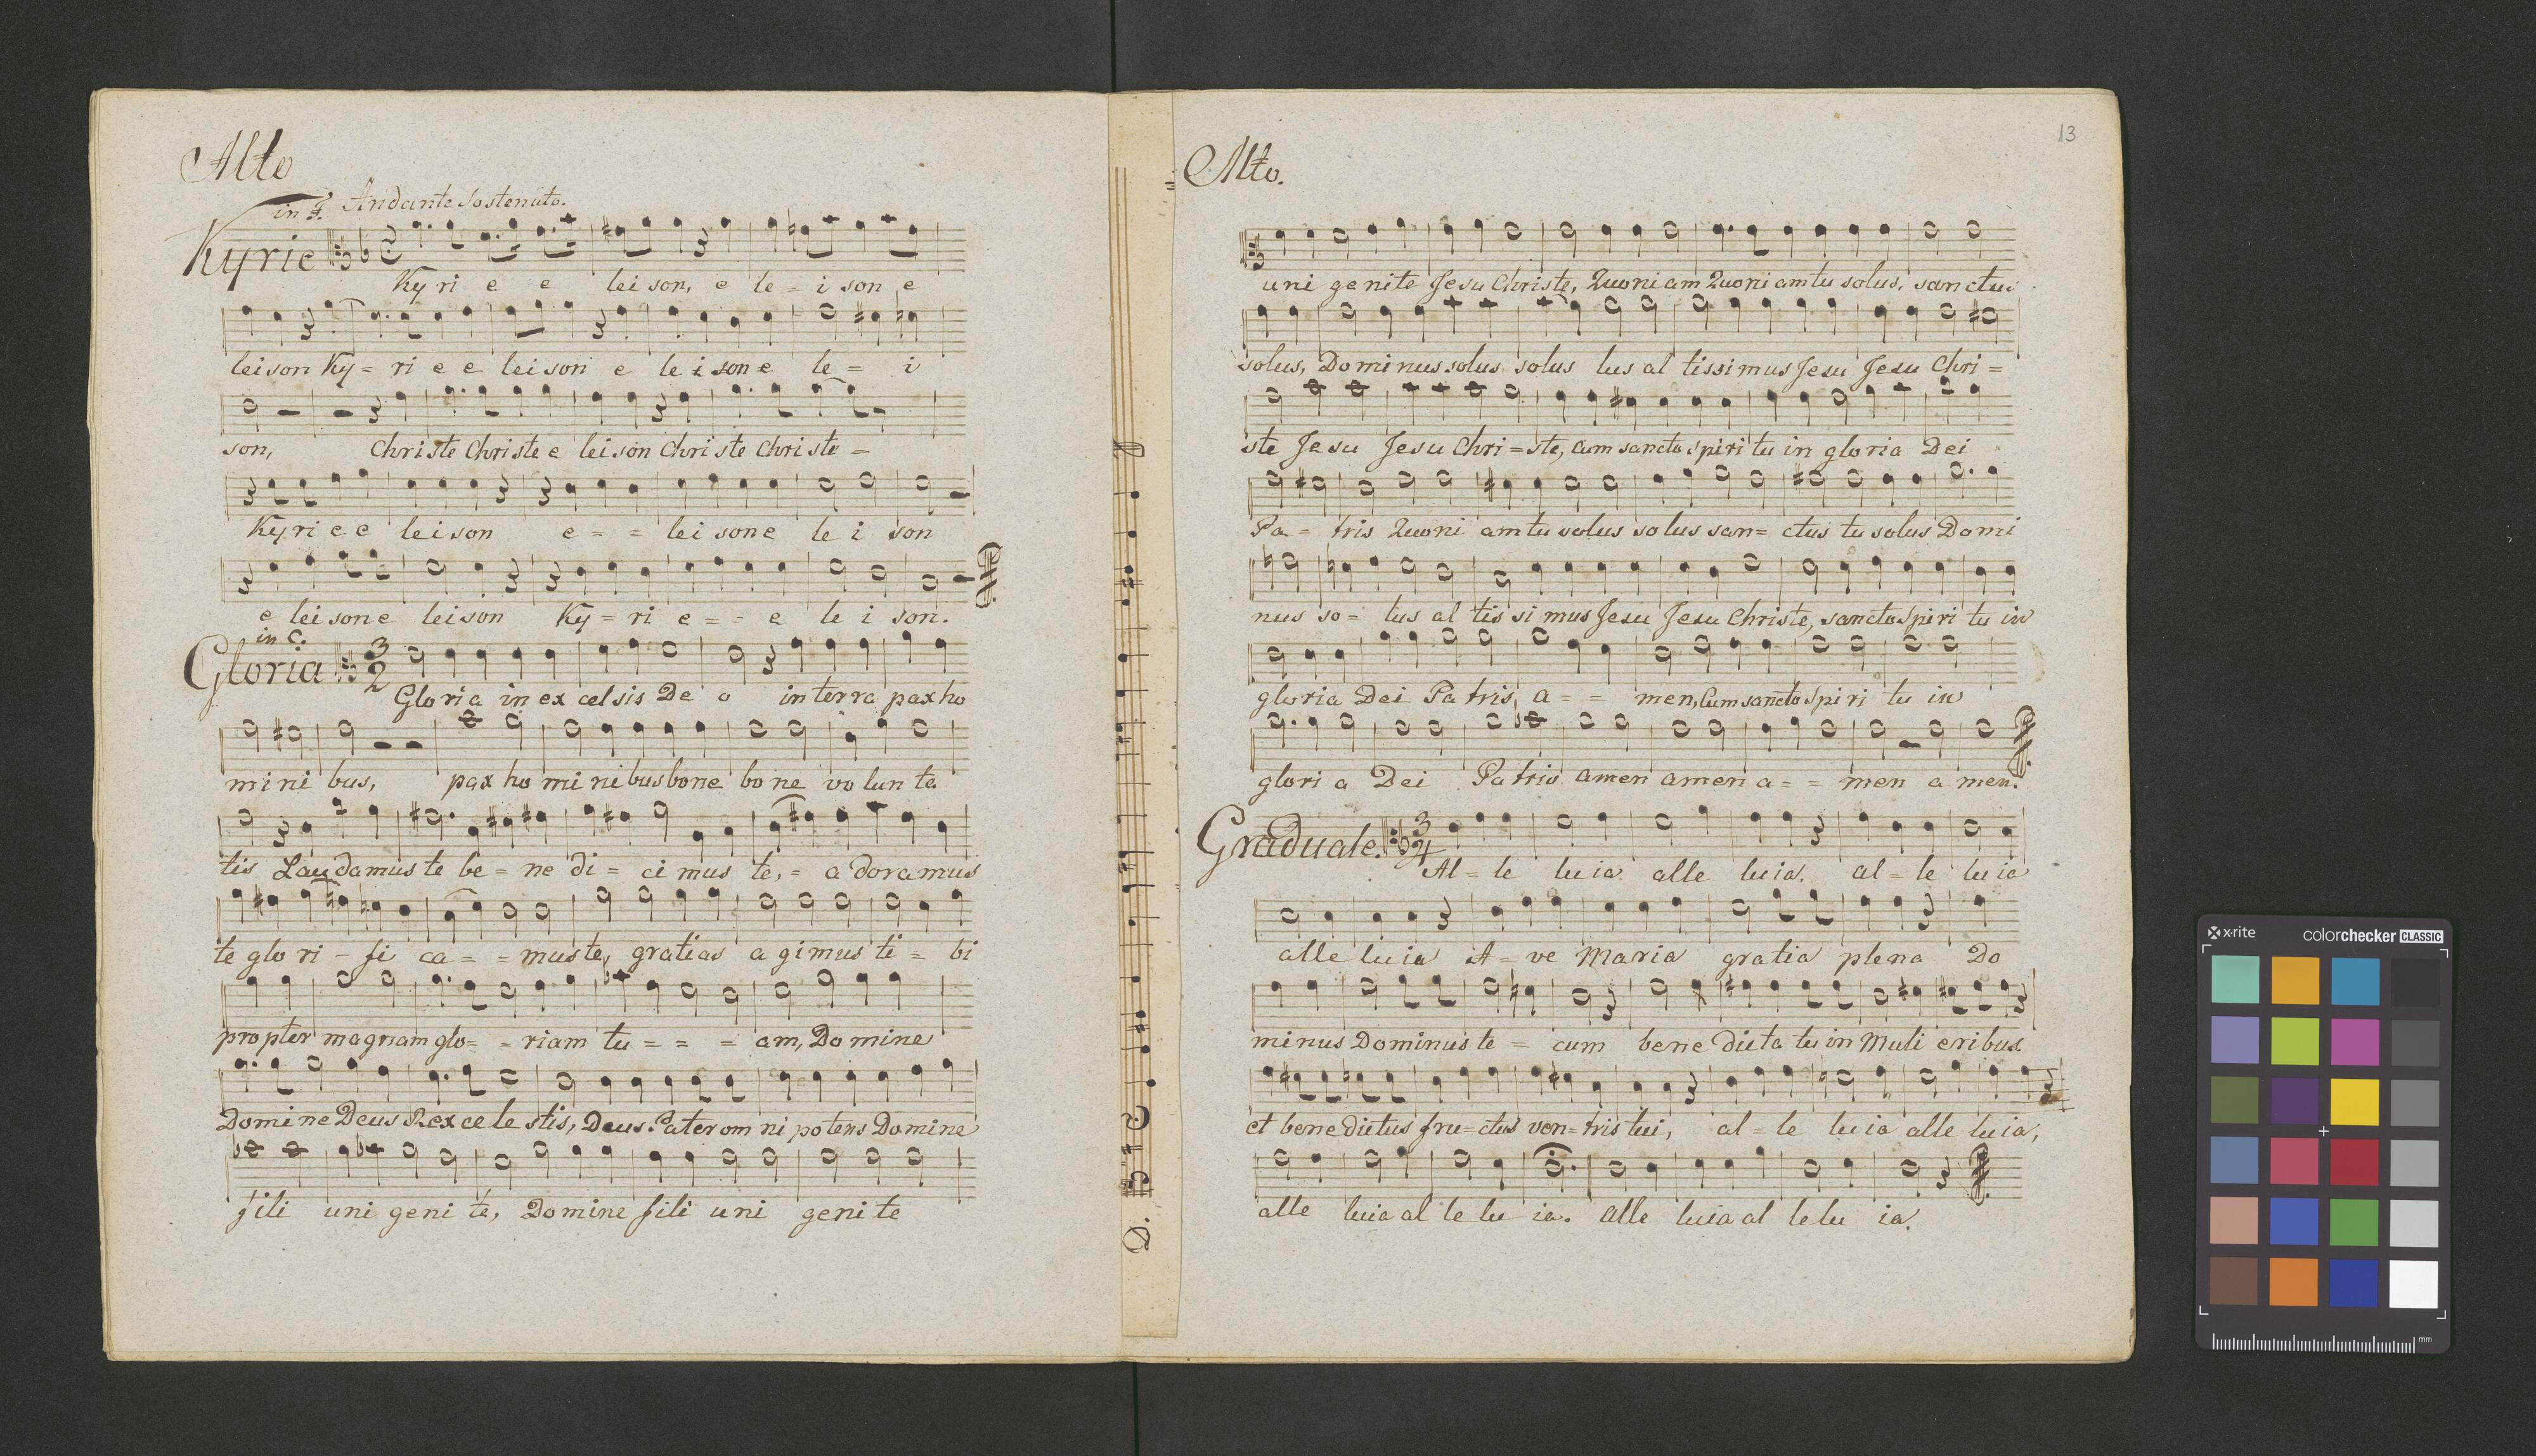 Alto
in F. Andante Sostenuto.
Kyrie
Ky ri e e lei son, e le - i son e
lei son Ky = ri e e lei son e le i son e le = i
son, Christe Christe e lei son Christe Christe =
Ky ri e e lei son e = = lei son e le i son
e lei son e lei son Ky = ri e = = e le i son.
in C.
Gloria 3/2
Glo ri a in ex cel sis De o in terra pax ho
mi ni bus, pax ho mi ni bus bone bo ne vo lun ta
tis Lau damus te be = ne di = ci mus te, = a dora mus
te glo ri - fi ca = = mus te, gratias a gi mus ti = bi
propter magnam glo = = riam tu = = = am, Do mine
Domi ne Deus Rex ce le stis, Deus Pater om ni potens Domine
fili uni geni te, Domine fili uni geni te
D. 3 1 C
Alto.
13
uni genite Jesu Christe, Quoniam Quoni am tu solus, sanctus
solus, Dominus solus solus lus al tissimus Jesu Jesu Chri =
ste Jesu Jesu Chri = ste, cum sancto spiri tu in gloria Dei
Pa = tris Quoni am tu solus solus san = ctus tu solus Domi
nus so = lus al tis si mus Jesu Jesu Christe, sancto Spiri tu in
gloria Dei Patris, a = = men, Cum sancto Spiri tu in
glori a Dei Patris amen amen a = = men a men.
Graduale. 3/4
Al = le luia alle luia. al = le luia
alle luia A = ve Maria gratia plena Do
minus Dominus te = cum bene dicta tu in Muli eribus.
et benedictus fru = ctus ven = tris tui, al = le luia alle luia,
alle luia al le lu ia. alle luia al le lu ia.